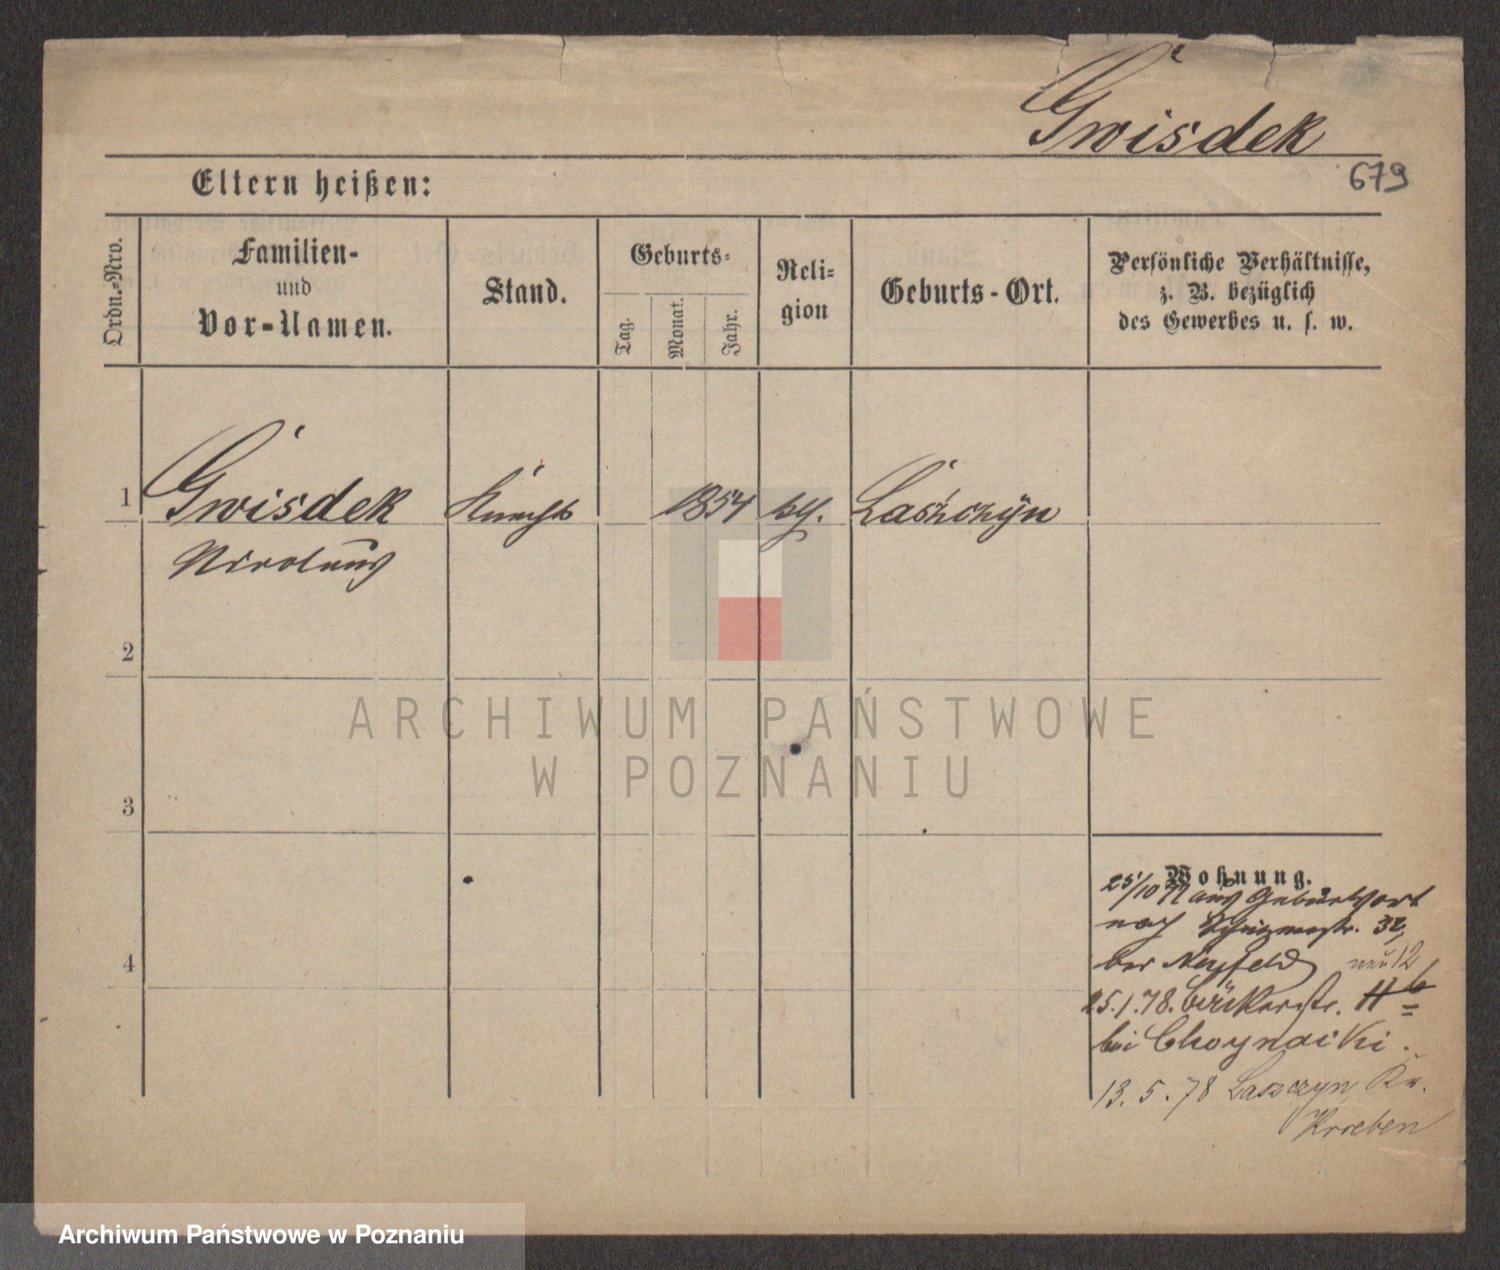 Gwisdek
679
Eltern heißen:
Ordn.-Nro.
Familien-
und
Vor-Namen.
Stand.
Geburts-
Tag.
Monat.
Jahr.
Reli-
gion
Geburts-Ort.
Persönliche Verhältnisse,
z. B. bezüglich
des Gewerbes u. s. w.
1
Gwisdek
Knecht
1854
Laszczyn
Nicolaus
2
ARCHIWUM PAŃSTWOWE
W POZNANIU
3
Wohnung.
25/10 77 aus Geburtsort
nach 32,
bei Neyfeld neu 12
4
25.1.78. Bäckerstr. 11 b
bei Choynacki.
13.5.78 Laszczyn, Kr.
Kroeben
Archiwum Państwowe w Poznaniu